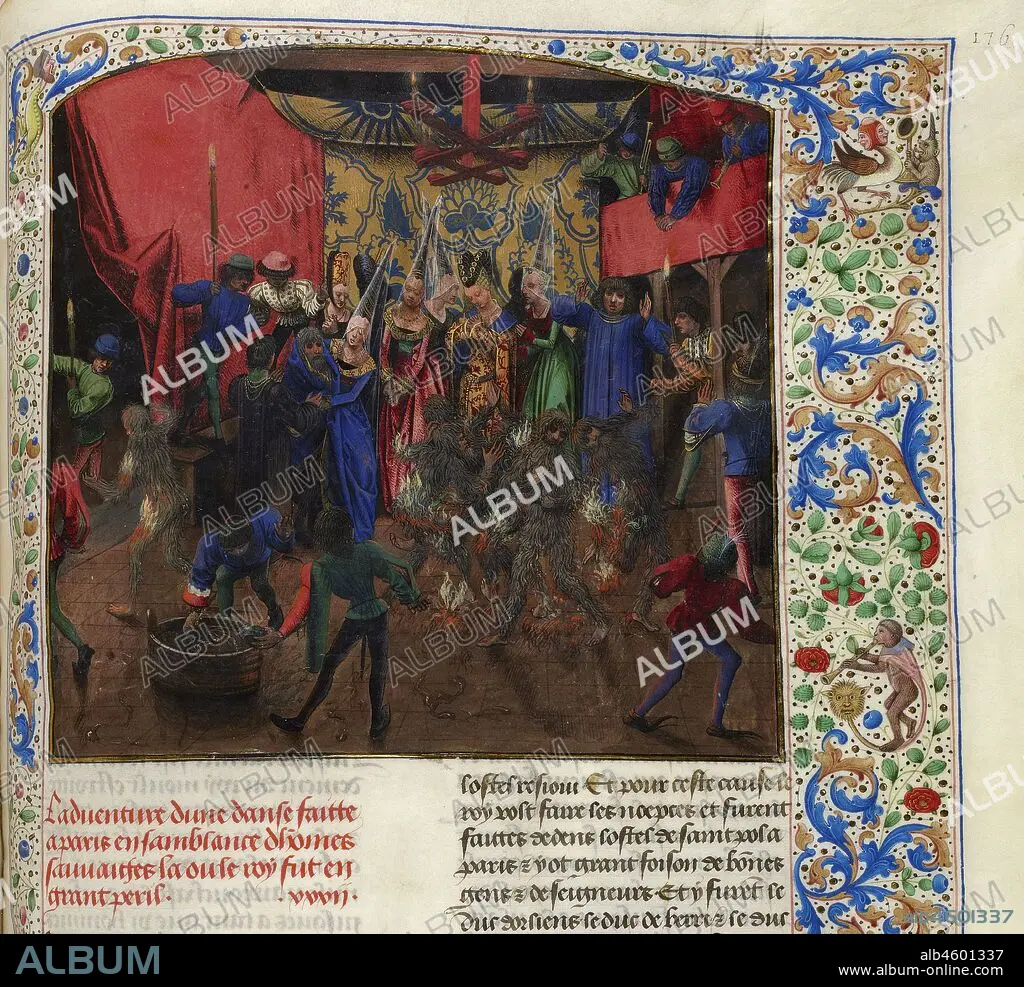 176
Ladventure dune danse faitte
a paris en samblance dhōmes
sauuaiges la ou le roy fut en
grant peril. .xxxii.
lostel resioui Et pour ceste cause le
roy volt faire les noepces et furent
faittes dedens lostel de saint pol a
paris & y ot grant foison de bōnes
gens & de seigneurs Et y furēt le
Duc dorliens le duc de berre & le duc
alb4601337
ALBUM
alb4601337
www.album-online.com